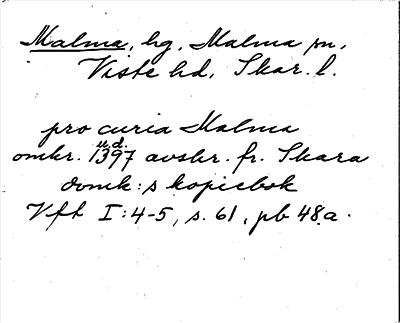 Malma, hg, Malma sn,
Viste hd, Skar. l.
pro curia Malma
u.d.
omkr. 1397 avskr. fr. Skara
domk:s kopiebok
Vft I:4-5, s. 61, pb 48a.